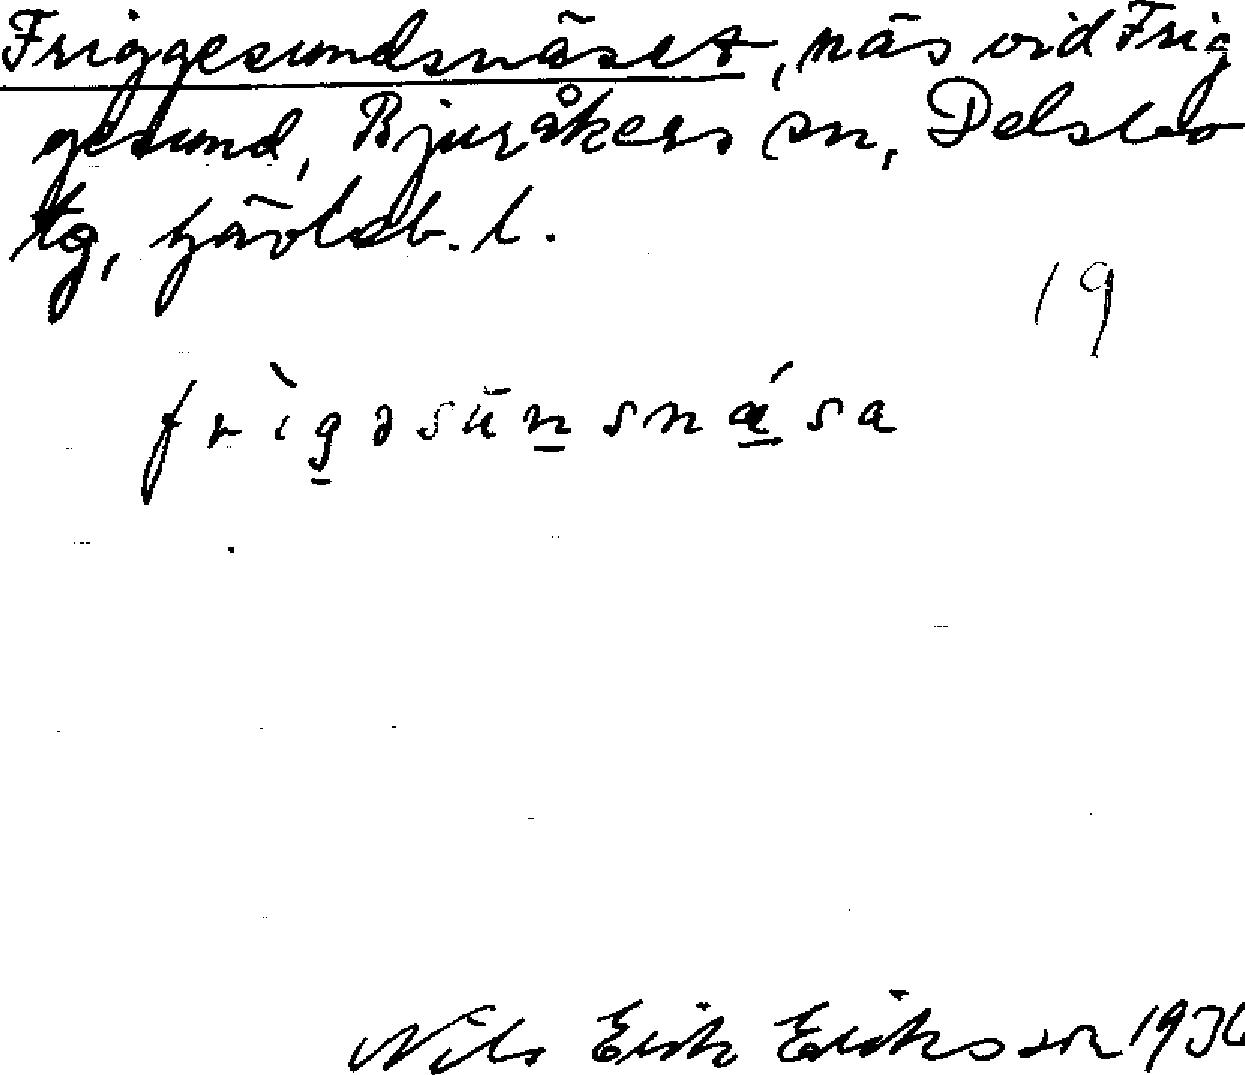 Friggesundsnäset, näs vid Frig
gesund, Bjuråkers sn, Delsbo
tg, Gävleb. l.
19
frìgəsūnsnǽsa
Nils Erik Eriksson 1936